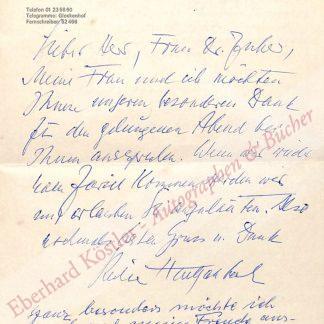 Telefon 01 23 56 60
Telegramme: Glockenhof
Fernschreiber 52 466
Lieber Herr, Frau Dr. 
Meine Frau und ich möchten
Ihnen unseren besonderen Dank
für den gelungenen Abend bei
Ihnen aussprechen. Wenn wir wieder
nach Zürich kommen werden wir
uns erlauben Sie Also
nochmals besten Gruss u. Dank
ganz besonders möchte ich
Eberhard Köstler - Autographen & Bücher